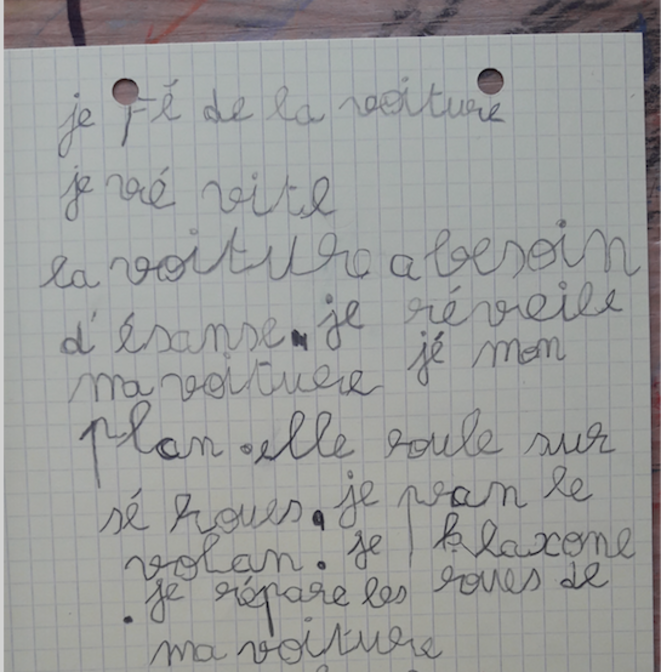 je fé de la voiture
je vé vite
la voiture a besoin
d'ésanse. je réveile
ma voiture jé mon
plan. elle roule sur
sé roues. je pran le
volan. je klaxone
. je répare les roues de
ma voiture